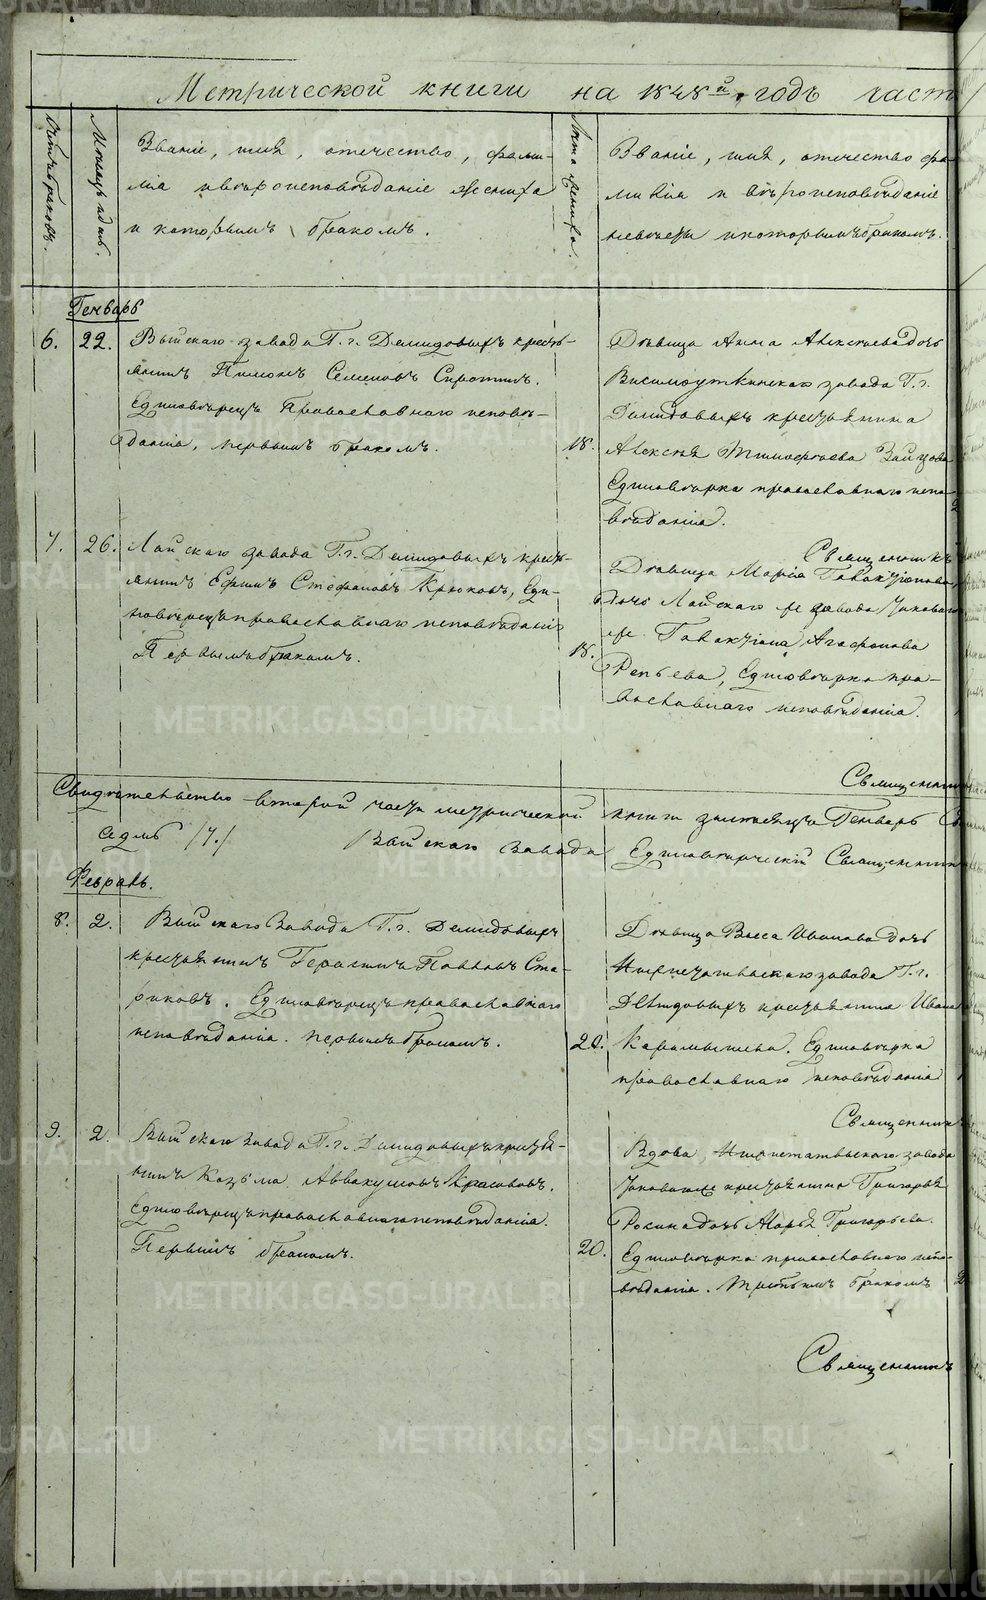 Метрической книги на 1848й годъ част
Счетъ браковъ.
Мѣсяцъ и день.
Званіе, имя, отечество, фами-
лія и вѣроисповѣданіе жениха
и которымъ бракомъ.
Лѣта жениха.
Званіе, имя, отечество фа-
милія и вѣроисповѣданіе
невѣсты и которымъ бракомъ.
Генварь
6. 22. Выйскаго завода Г.г. Демидовыхъ кресть-
янинъ Пимонъ Семеновъ Сиротинъ.
Единовѣрецъ Православнаго исповѣ-
данія, первымъ бракомъ.
18.
Дѣвица Анна Алексѣева дочь
Висимоуткинскаго завода Г.г.
Демидовыхъ крестьянина
Алексѣя Тимофѣева Зайцова
Единовѣрка православнаго испо-
вѣданія.
Священникъ
7. 26. Лайскаго завода Г.г. Демидовыхъ кресть-
янинъ Ефимъ Стефановъ Крюковъ, Еди-
новѣрецъ православнаго исповѣданія
Первымъ бракомъ.
18.
Дѣвица Марія
дочь Лайскаго же завода
Агафонова
Репьева, Единовѣрка пра-
вославнаго исповѣданія.
Священник
Свидѣтельство второй части метрической книги за мѣсяцъ Генварь
седмь /7./ Выйскаго завода Единовѣрческій Священник
Февраль.
8. 2. Выйскаго Завода Г.г. Демидовыхъ
крестьянинъ Герасимъ Павловъ Ста-
риковъ. Единовѣрецъ православнаго
исповѣданія. первымъ бракомъ.
20.
Дѣвица Васса Иванова дочь
Нижнетагильскаго завода Г.г.
Демидовыхъ крестьянина Ивана
Карамышева. Единовѣрка
православнаго исповѣданія
Священник
9. 2. Выйскаго завода Г.г. Демидовыхъ крестья-
нинъ Козьма Аввакумовъ Красовъ.
Единовѣрецъ православнаго исповѣданія.
Первымъ бракомъ.
20.
Вдова, Нижнетагильскаго завода
крестьянина Григорья
дочь Марья Григорьева.
Единовѣрка православнаго испо-
вѣданія. Третьимъ бракомъ
Священникъ
METRIKI.GASO-URAL.RU